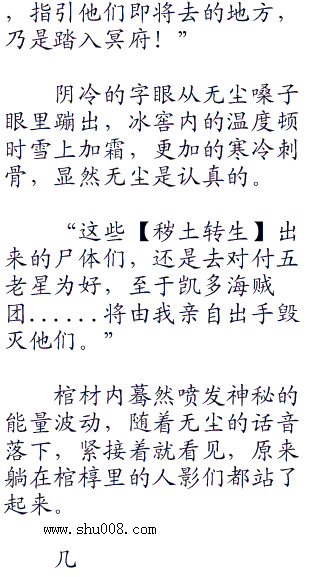 ，指引他们即将去的地方，
乃是踏入冥府！”
阴冷的字眼从无尘嗓子
眼里蹦出，冰窖内的温度顿
时雪上加霜，更加的寒冷刺
骨，显然无尘是认真的。
“这些【秽土转生】出
来的尸体们，还是去对付五
老星为好，至于凯多海贼
团......将由我亲自出手毁
灭他们。”
棺材内蓦然喷发神秘的
能量波动，随着无尘的话音
落下，紧接着就看见，原来
躺在棺椁里的人影们都站了
起来。
www.shu008.com
几